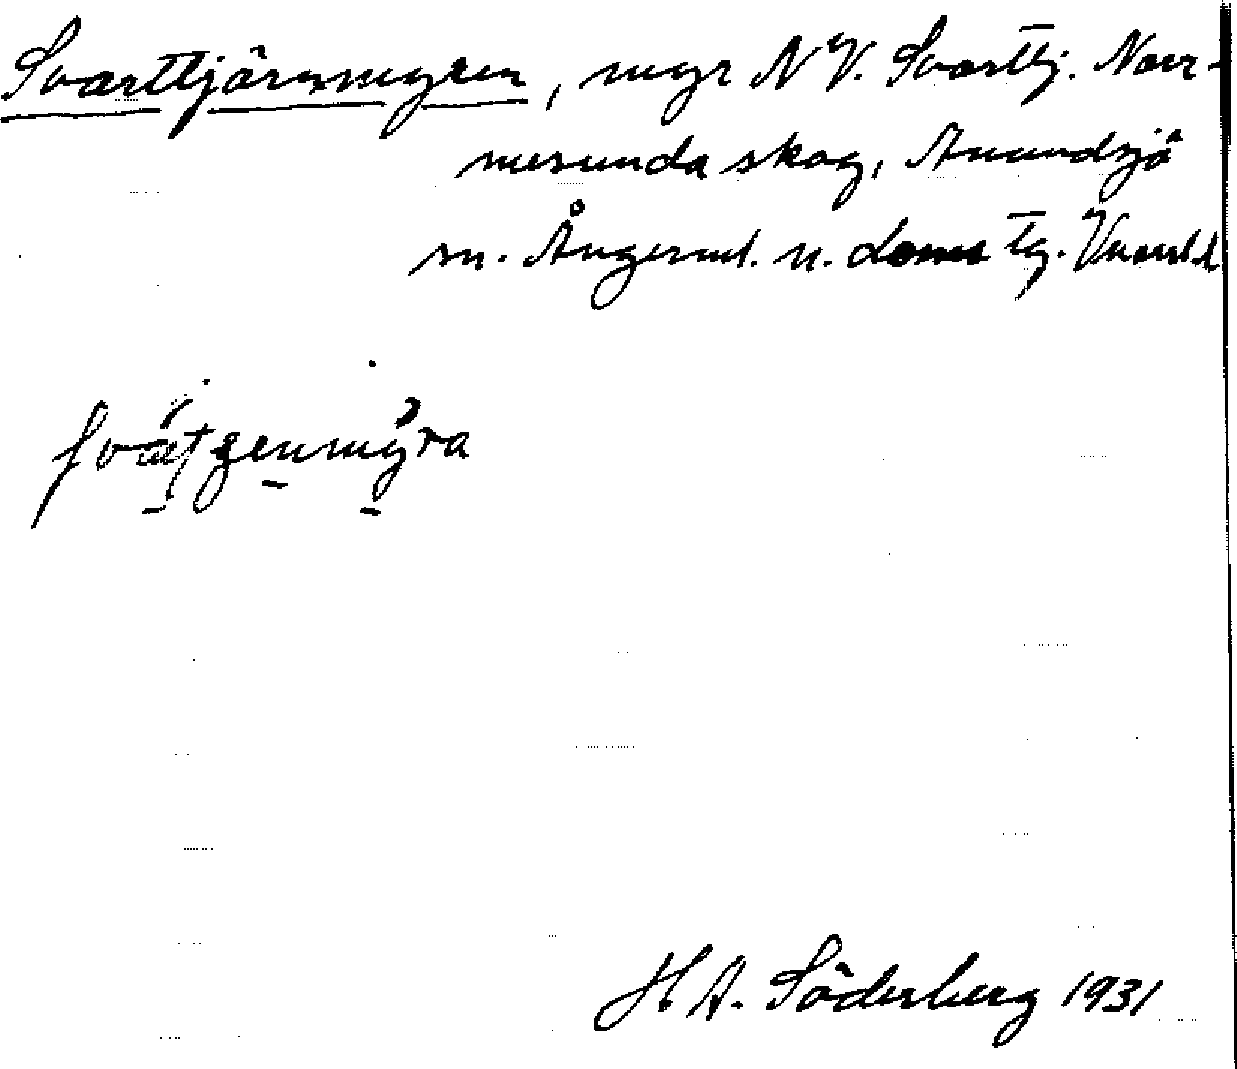 Svarttjärnmyren, myr N V. Svarttj. Norr-
mesunda skog, Anundsjö
sn. Ångerml. n. doms tg. Vnorrl. l
svätjenmyra
H A. Söderberg 1931